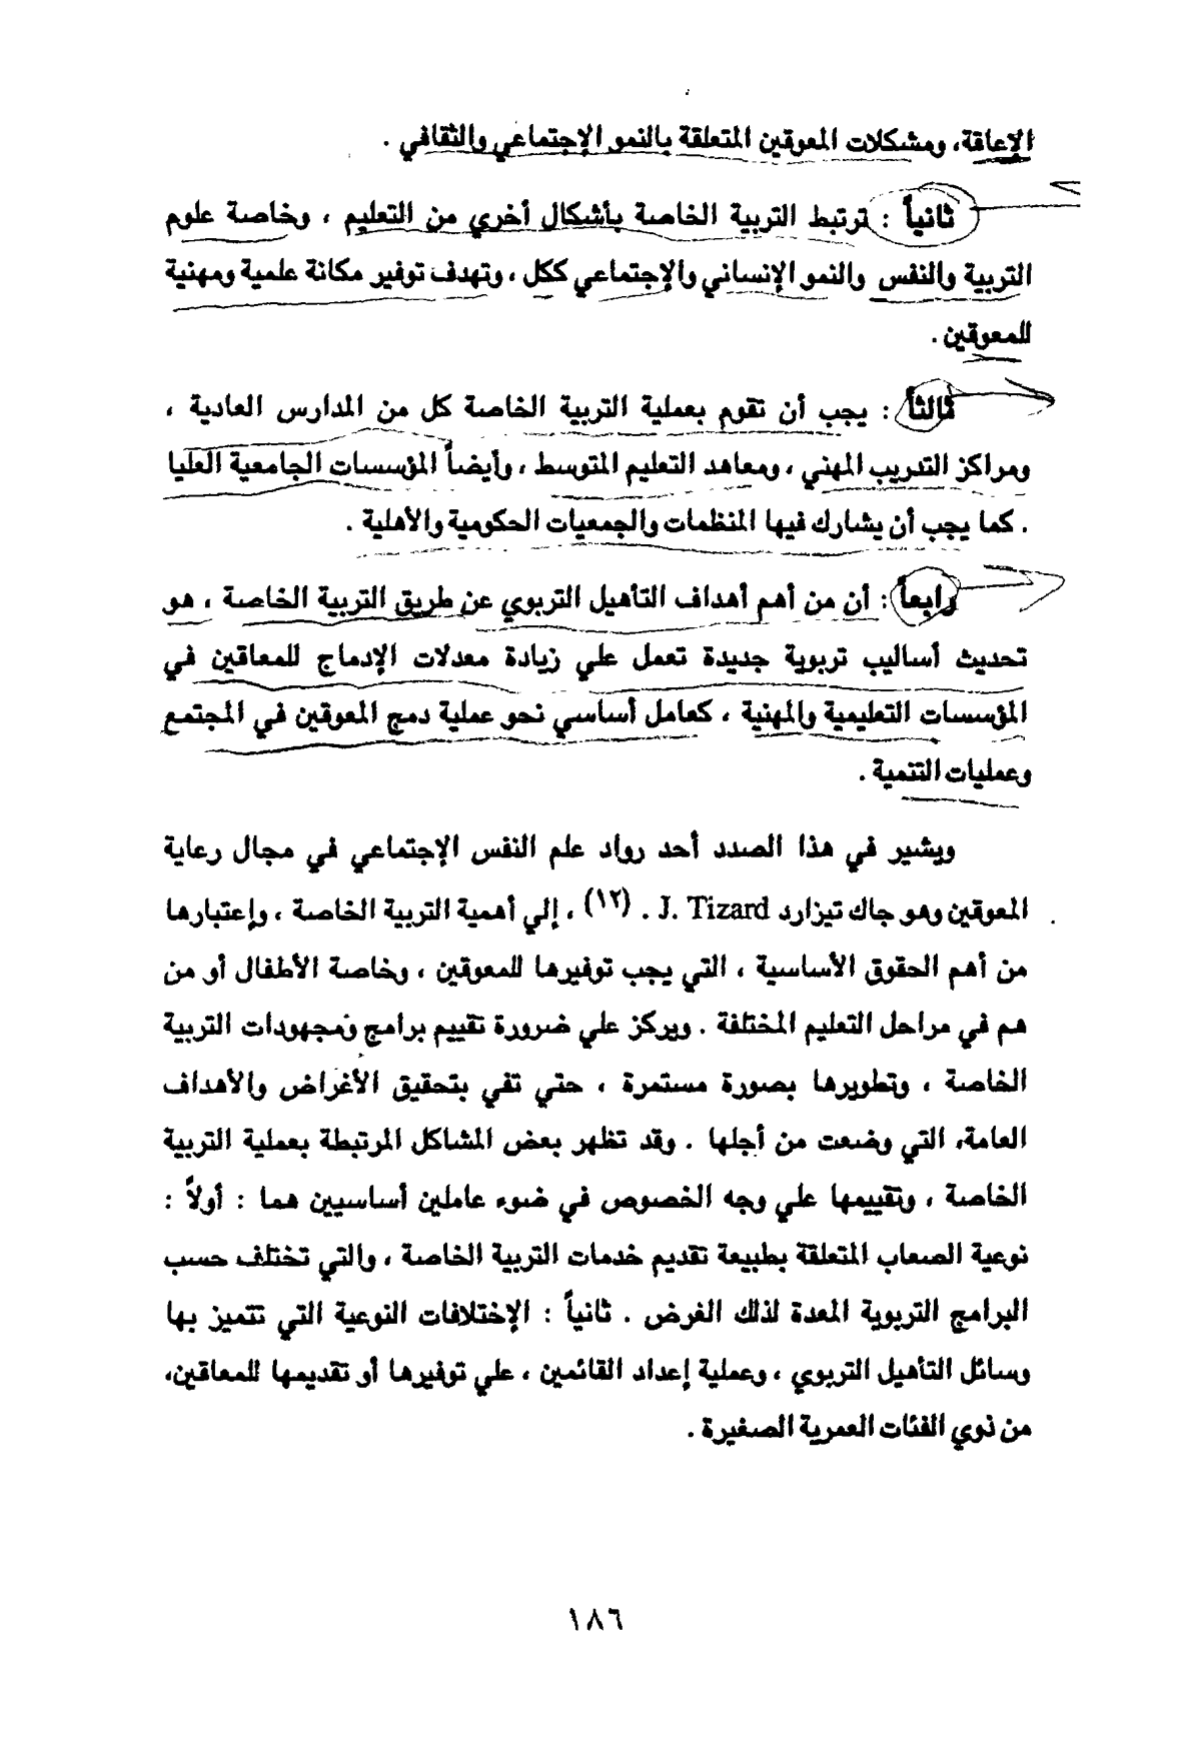 الإعاقة، ومشكلات المعوقين المتعلقة بالنمو الإجتماعي والثقافي .
ثانياً : ترتبط التربية الخاصة بأشكال أخري من التعليم ، وخاصة علوم
التربية والنفس والنمو الإنساني والإجتماعي ككل ، وتهدف توفير مكانة علمية ومهنية
للمعوقين .
ثالثاً : يجب أن تقوم بعملية التربية الخاصة كل من المدارس العادية ،
ومراكز التدريب المهني ، ومعاهد التعليم المتوسط ، وأيضاً المؤسسات الجامعية العليا
. كما يجب أن يشارك فيها المنظمات والجمعيات الحكومية والأهلية .
رابعاً : أن من أهم أهداف التأهيل التربوي عن طريق التربية الخاصة ، هو
تحديث أساليب تربوية جديدة تعمل علي زيادة معدلات الإدماج للمعاقين في
المؤسسات التعليمية والمهنية ، كعامل أساسي نحو عملية دمج المعوقين في المجتمع
وعمليات التنمية .
ويشير في هذا الصدد أحد رواد علم النفس الإجتماعي في مجال رعاية
المعوقين وهو جاك تيزارد J. Tizard . (١٢) ، إلي أهمية التربية الخاصة ، وإعتبارها
من أهم الحقوق الأساسية ، التي يجب توفيرها للمعوقين ، وخاصة الأطفال أو من
هم في مراحل التعليم المختلفة . ويركز علي ضرورة تقييم برامج ومجهودات التربية
الخاصة ، وتطويرها بصورة مستمرة ، حتي تفي بتحقيق الأغراض والأهداف
العامة، التي وضعت من أجلها . وقد تظهر بعض المشاكل المرتبطة بعملية التربية
الخاصة ، وتقييمها علي وجه الخصوص في ضوء عاملين أساسيين هما : أولاً :
نوعية الصعاب المتعلقة بطبيعة تقديم خدمات التربية الخاصة ، والتي تختلف حسب
البرامج التربوية المعدة لذلك الغرض . ثانياً : الإختلافات النوعية التي تتميز بها
وسائل التأهيل التربوي ، وعملية إعداد القائمين ، علي توفيرها أو تقديمها للمعاقين،
من ذوي الفئات العمرية الصغيرة .
١٨٦